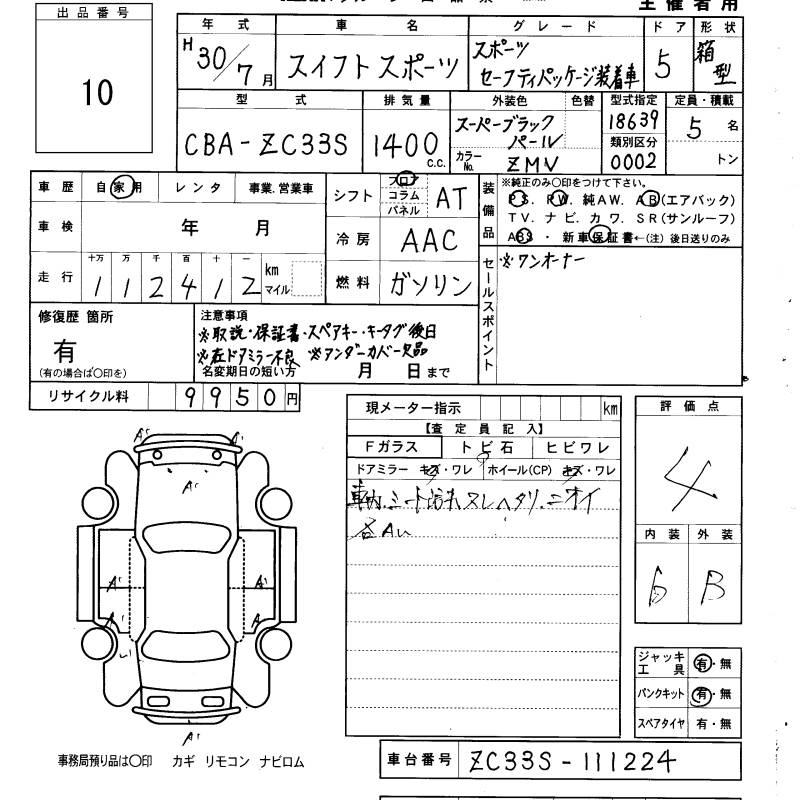 主催者用
出品番号
10
年式 車名 グレード ドア 形状
H30/7月 スイフトスポーツ スポーツ セーフティパッケージ装着車 5 箱型
型式 排気量 外装色 色替 型式指定 定員・積載
CBA-ZC33S 1400c.c. スーパーブラックパール 18639 5名
カラーNo. ZMV 類別区分 0002 トン
車歴 自家用 レンタ 事業.営業車
シフト フロア コラム パネル AT
装備品 ※純正のみ〇印をつけて下さい。
PS. PW. 純AW. AB(エアバック)
TV. ナビ. カワ. SR(サンルーフ)
ABS ・ 新車保証書←(注) 後日送りのみ
車検 年 月
冷房 AAC
走行 十万 万 千 百 十 一
112412 km マイル
燃料 ガソリン
セールスポイント ※ワンオーナー
修復歴 箇所
有
(有の場合は〇印を)
注意事項
※取説・保証書・スペアキー・キータグ後日
※左ドアミラー不良 ※アンダーカバー欠品
名変期日の短い方 月 日まで
リサイクル料 9950円
現メーター指示 km
【査定員記入】
Fガラス トビ石 ヒビワレ
ドアミラー キズ・ワレ ホイール(CP) キズ・ワレ
車内.シート汚れスレヘタリ.ニオイ
各AU
評価点
4
内装 外装
B
A' A'
A'
A' A' A'
A' A'
A'
ジャッキ工具 有・無
パンクキット 有・無
スペアタイヤ 有・無
事務局預り品は〇印 カギ リモコン ナビロム
車台番号 ZC33S-111224